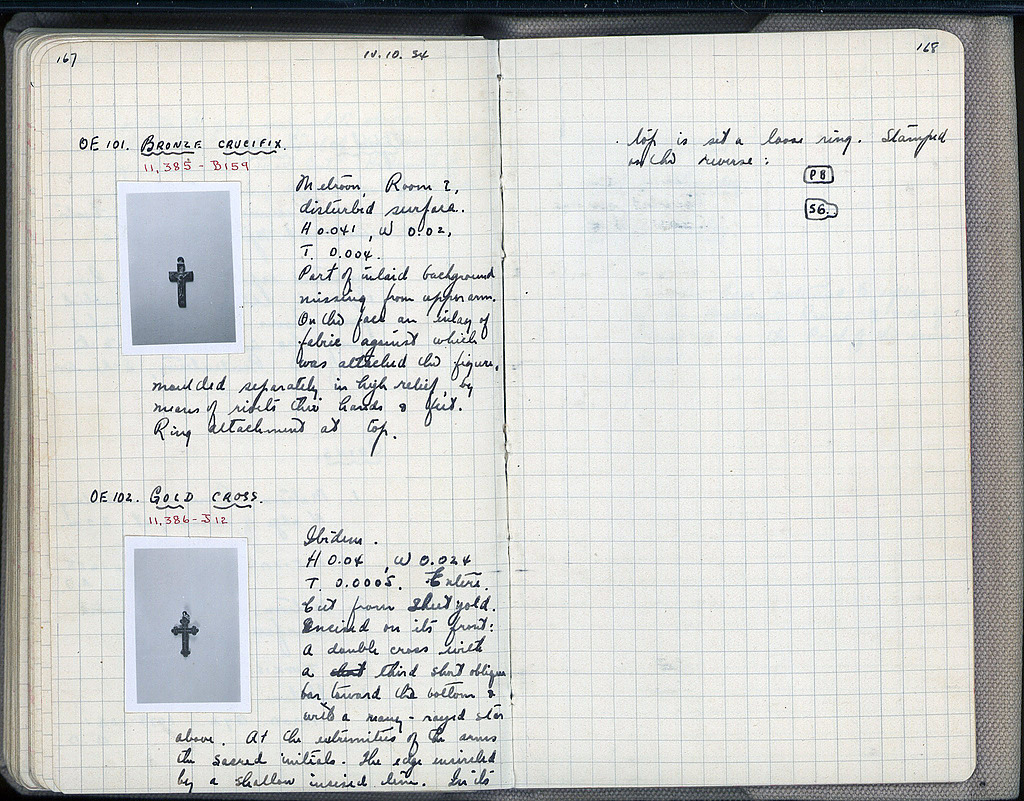 167
10.10.34
OE 101. BRONZE CRUCIFIX.
11,385 - B159
Metroon, Room 2,
disturbed surface.
H 0.041, W 0.02,
T. 0.004.
Part of inlaid background
missing from upper arm.
On the face an inlay of
fabric against which
was attached the figure,
moulded separately in high relief, by
means of rivets thro hands & feet.
Ring attachment at top.
OE 102. GOLD CROSS.
11,386 - J12
Ibidem.
H 0.04, W 0.024
T. 0.0005. Entire.
Cut from sheet gold.
Incised on its front:
a double cross with
a short third short oblique
bar toward the bottom &
with a many-rayed star
above. At the extremities of the arms
the sacred initials. The edge encircled
by a shallow incised line. In its
168
top is set a loose ring. Stamped
on the reverse:
P8
56.